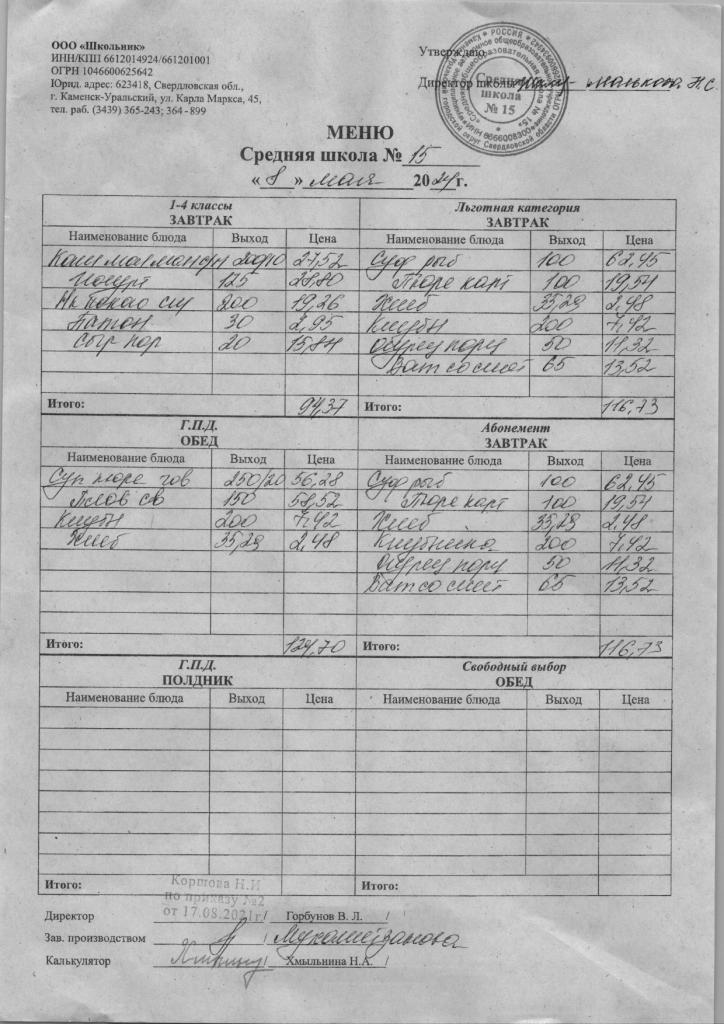 ООО «Школьник»
ИНН/КПП 6612014924/661201001
ОГРН 1046600625642
Юрид. адрес: 623418, Свердловская обл.,
г. Каменск-Уральский, ул. Карла Маркса, 45,
тел. раб. (3439) 365-243; 364-899
Утверждаю
Директор школы
Средняя
школа
№ 15
МЕНЮ
Средняя школа № 15
« 8 » мая 2024г.
1-4 классы
ЗАВТРАК
Наименование блюда Выход Цена
200/10 27,52
Йогурт 125 28,80
Нк какао сгу 200 19,26
Батон 30 2,95
Сыр пор 20 15,84
Итого: 94,37
Льготная категория
ЗАВТРАК
Наименование блюда Выход Цена
Суф рыб 100 62,45
Пюре карт 100 19,54
Хлеб 35,29 2,48
200 7,42
Огурец порц 50 11,32
Ват со смет 65 13,52
Итого: 116,73
Г.П.Д.
ОБЕД
Наименование блюда Выход Цена
Суп пюре гов 250/20 56,28
Плов св 150 58,52
200 7,42
Хлеб 35,29 2,48
Итого: 124,70
Абонемент
ЗАВТРАК
Наименование блюда Выход Цена
Суф рыб 100 62,45
Пюре карт 100 19,54
Хлеб 35,29 2,48
200 7,42
Огурец порц 50 11,32
Ват со смет 65 13,52
Итого: 116,73
Г.П.Д.
ПОЛДНИК
Наименование блюда Выход Цена
Итого:
Свободный выбор
ОБЕД
Наименование блюда Выход Цена
Итого:
Коргова Н.И
по приказу №2
от 17.08.2021г
Директор / Горбунов В. Л. /
Зав. производством / /
Калькулятор / Хмыльнина Н.А. /